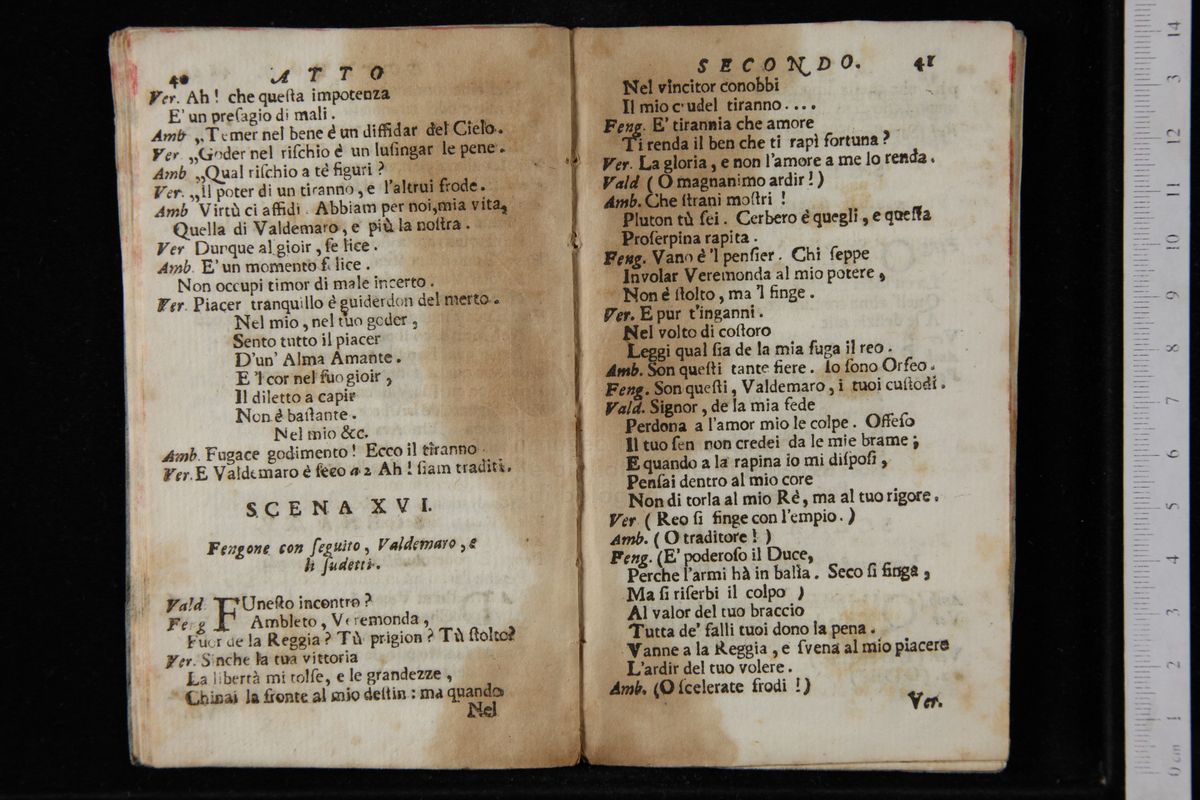 40 ATTO
Ver. Ah! che queſta impotenza
E' un preſagio di mali.
Amb „Temer nel bene è un diffidar del Cielo.
Ver „Goder nel riſchio è un luſingar le pene.
Amb „Qual riſchio a tè figuri?
Ver. „Il poter di un tiranno, e l'altrui frode.
Amb Virtù ci affidi. Abbiam per noi, mia vita,
Quella di Valdemaro, e più la noſtra.
Ver Dunque al gioir, felice.
Amb. E' un momento felice.
Non occupi timor di male incerto.
Ver. Piacer tranquillo è guiderdon del merto.
Nel mio, nel tuo goder,
Sento tutto il piacer
D'un' Alma Amante.
E 'l cor nel ſuo gioir,
Il diletto a capir
Non è baſtante.
Nel mio &c.
Amb. Fugace godimento! Ecco il tiranno
Ver. E Valdemaro è ſeco a 2 Ah! ſiam traditi.
SCENA XVI.
Fengone con ſeguito, Valdemaro, e
li ſudetti.
Vald FUneſto incontro?
Feng Ambleto, Veremonda,
Fuor de la Reggia? Tù prigion? Tù ſtolto?
Ver. Sinche la tua vittoria
La libertà mi tolſe, e le grandezze,
Chinai la fronte al mio deſtin: ma quando
Nel
SECONDO. 41
Nel vincitor conobbi
Il mio crudel tiranno....
Feng. E' tirannia che amore
Ti renda il ben che ti rapì fortuna?
Ver. La gloria, e non l'amore a me lo renda.
Vald (O magnanimo ardir!)
Amb. Che ſtrani moſtri!
Pluton tù ſei. Cerbero è quegli, e queſta
Proſerpina rapita.
Feng. Vano è 'l penſier. Chi ſeppe
Involar Veremonda al mio potere,
Non è ſtolto, ma 'l finge.
Ver. E pur t'inganni.
Nel volto di coſtoro
Leggi qual ſia de la mia fuga il reo.
Amb. Son queſti tante fiere. Io ſono Orfeo.
Feng. Son queſti, Valdemaro, i tuoi cuſtodi.
Vald. Signor, de la mia fede
Perdona a l'amor mio le colpe. Offeſo
Il tuo ſen non credei da le mie brame;
E quando a la rapina io mi diſpoſi,
Penſai dentro al mio core
Non di torla al mio Rè, ma al tuo rigore.
Ver (Reo ſi finge con l'empio.)
Amb. (O traditore!)
Feng. (E' poderoſo il Duce,
Perche l'armi hà in balìa. Seco ſi finga,
Ma ſi riſerbi il colpo)
Al valor del tuo braccio
Tutta de' falli tuoi dono la pena.
Vanne a la Reggia, e ſvena al mio piacere
L'ardir del tuo volere.
Amb. (O ſcelerate frodi!)
Ver.